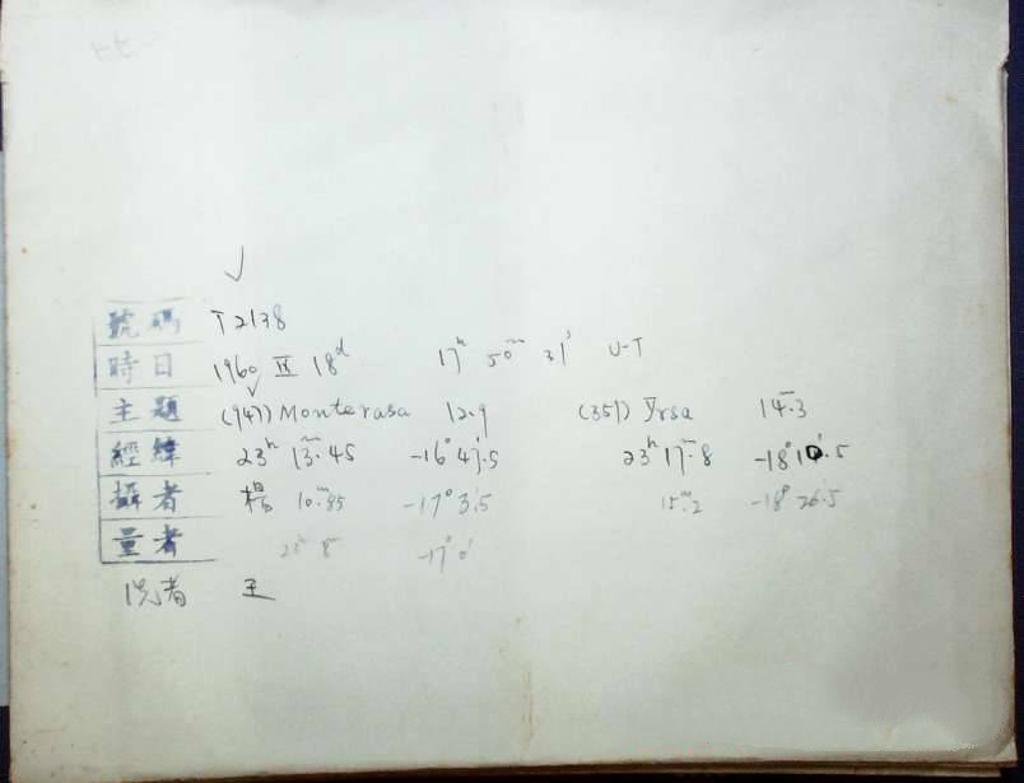 號碼 T2138
時日 1960 IX 18d 17h 50m 31s U-T
主題 (947) Monterosa 12.9 (351) Yrsa 14.3
經緯 23h 13m.45 -16°47'.5 23h 17m.8 -18°10'.5
攝者 楊 10m.85 -17°3'.5 15m.2 -18°26'.5
量者 23h 8m -17°0'
洗者 王